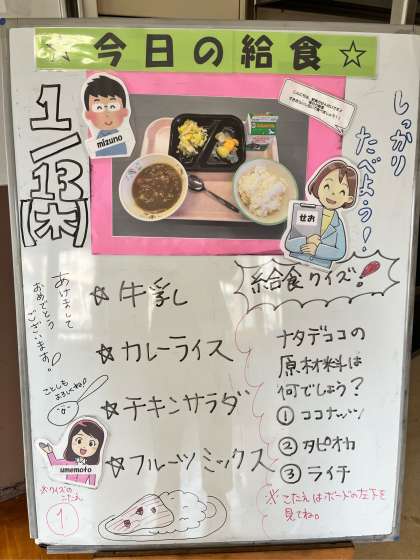 ☆今日の給食☆
1/13(木)
mizuno
しっかり
たべよう!
せお
あけまして
おめでとう
ございます。
ことしも
よろしくね!
☆牛乳
☆カレーライス
☆チキンサラダ
☆フルーツミックス
umemoto
☆クイズの
こたえ
1
給食クイズ!
ナタデココの
原材料は
何でしょう?
①ココナッツ
②タピオカ
③ライチ
※こたえはボードの左下を
見てね。